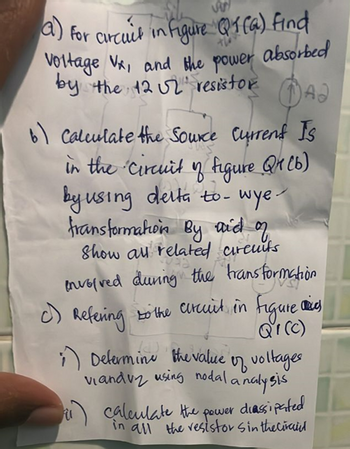 a) For circuit in figure Q1(a) find
voltage Vx, and the power absorbed
by the 12Ω resistor
b) Calculate the Source Current Is
in the circuit of figure Q1(b)
by using delta to - wye -
transformation By aid of
Show all related circuits
involved during the transformation
c) Refering to the circuit in figure
Q1(C)
i) Determine the value of voltages
v1 and v2 using nodal analysis
ii) calculate the power dissipated
in all the resistors in the circuit